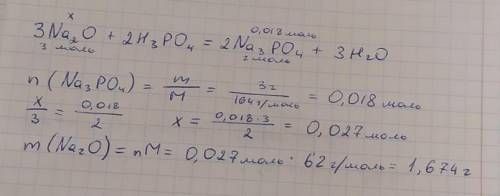 x 0,018 моль
3Na₂O + 2H₃PO₄ = 2Na₃PO₄ + 3H₂O
3 моль 2моль
n (Na₃PO₄) = m/M = 3г/164г/моль = 0,018 моль
x/3 = 0,018/2 x = 0,018·3/2 = 0,027моль
m(Na₂O) = nM = 0,027моль · 62г/моль = 1,674г